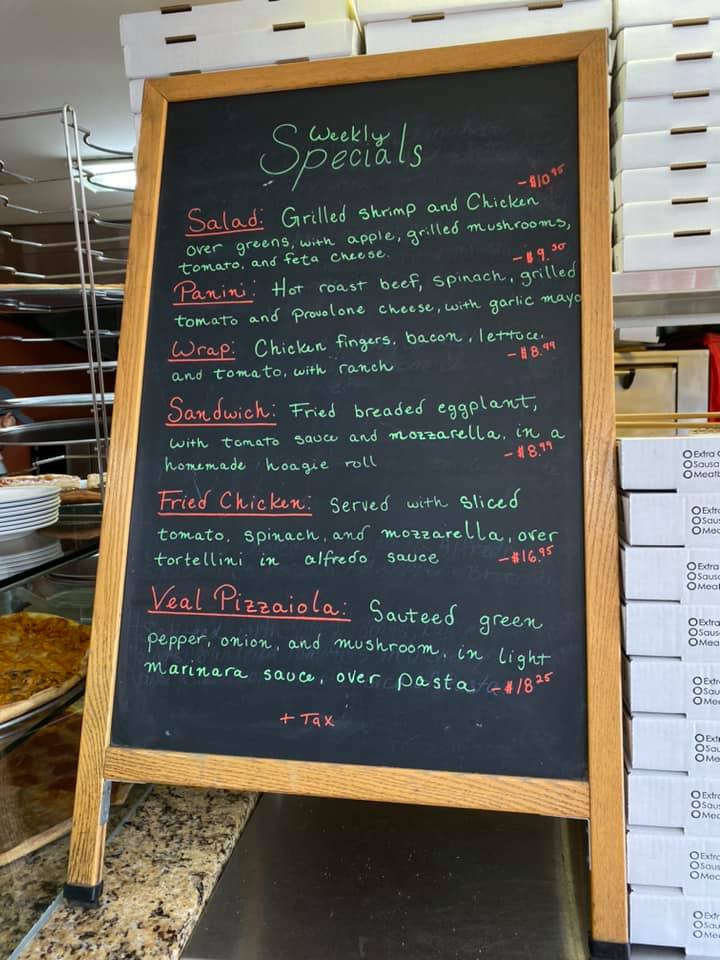 Weekly
Specials
- $10.95
Salad: Grilled shrimp and Chicken
over greens, with apple, grilled mushrooms,
tomato, and feta cheese.
- $9.50
Panini: Hot roast beef, spinach, grilled
tomato and Provolone cheese, with garlic mayo
Wrap: Chicken fingers, bacon, lettuce,
and tomato, with ranch
- $8.99
Sandwich: Fried breaded eggplant,
with tomato sauce and mozzarella, in a
homemade hoagie roll
- $8.99
Fried Chicken: Served with sliced
tomato, spinach, and mozzarella, over
tortellini in alfredo sauce - $16.95
Veal Pizzaiola: Sauteed green
pepper, onion, and mushroom, in light
marinara sauce, over pasta - $18.25
+ Tax
Extra
Sausa
Meatb
Extra
Saus
Mea
Extra
Sausa
Meat
Extra
Saus
Mea
Extr
Saus
Mea
Extr
Sau
Me
Extr
Saus
Mea
Extra
Saus
Mea
Extr
Sau
Mea